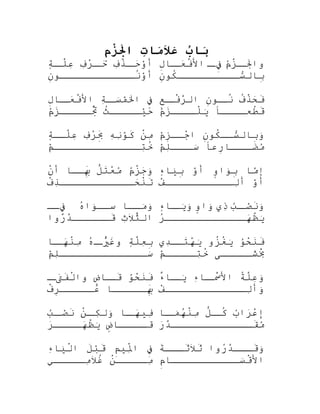 بَابُ عَلاَمَاتِ الْجَزْمِ
والجَزْمُ فِي الأَفْعَالِ أوْ حَذْفِ حَرْفِ عِلَّةٍ
بِالسُّكُونِ أوْ نُونِ
فَحَذْفَ نُونِ الرَّفْعِ فِي الْخَمْسَةِ الأَفْعَالِ
قَطْعاً يَلْزَمُ حَيْثُ تُجْزَمُ
وَبِالسُّكُونِ اجْزِمْ مِنْ كَوْنِهِ بِحَرْفِ عِلَّةٍ
مُضَارِعاً سَلِمْ خُتِمْ
إِمَّا بِوَاوٍ أوْ بِيَاءٍ وَجَزْمُ مُعْتَلٍّ بِهَا أنْ
أوْ أَلِفْ تَنْحَذِفْ
وَنَصْبُ ذِي وَاوٍ وَيَاءٍ وَمَا سِوَاهُ فِي
يَظْهَرُ الثَّلاثِ قَدَّرُوا
فَنَحْوُ يَغْزُو يَهْتَدِي بِعِلَّةٍ وَغَيْرُهُ مِنْهَا
يَخْشَى خُتِمْ سَلِمْ
وَعِلَّةُ الأَسْمَاءِ يَاءٌ فَنَحْوُ قَاضٍ والْفَتَى
وَأَلِفْ بِهَا عُرِفْ
إِعْرَابُ كُلٍّ مِنْهُمَا فِيهَا وَلكِنْ نَصْبُ
مُقَدَّرُ قَاضٍ يَظْهَرُ
وَقَدَّرُوا ثَلاَثَةَ فِي الْمِيمِ قَبْلَ الْيَاءِ
الأَقْسَامِ مِنْ غُلاَمِي